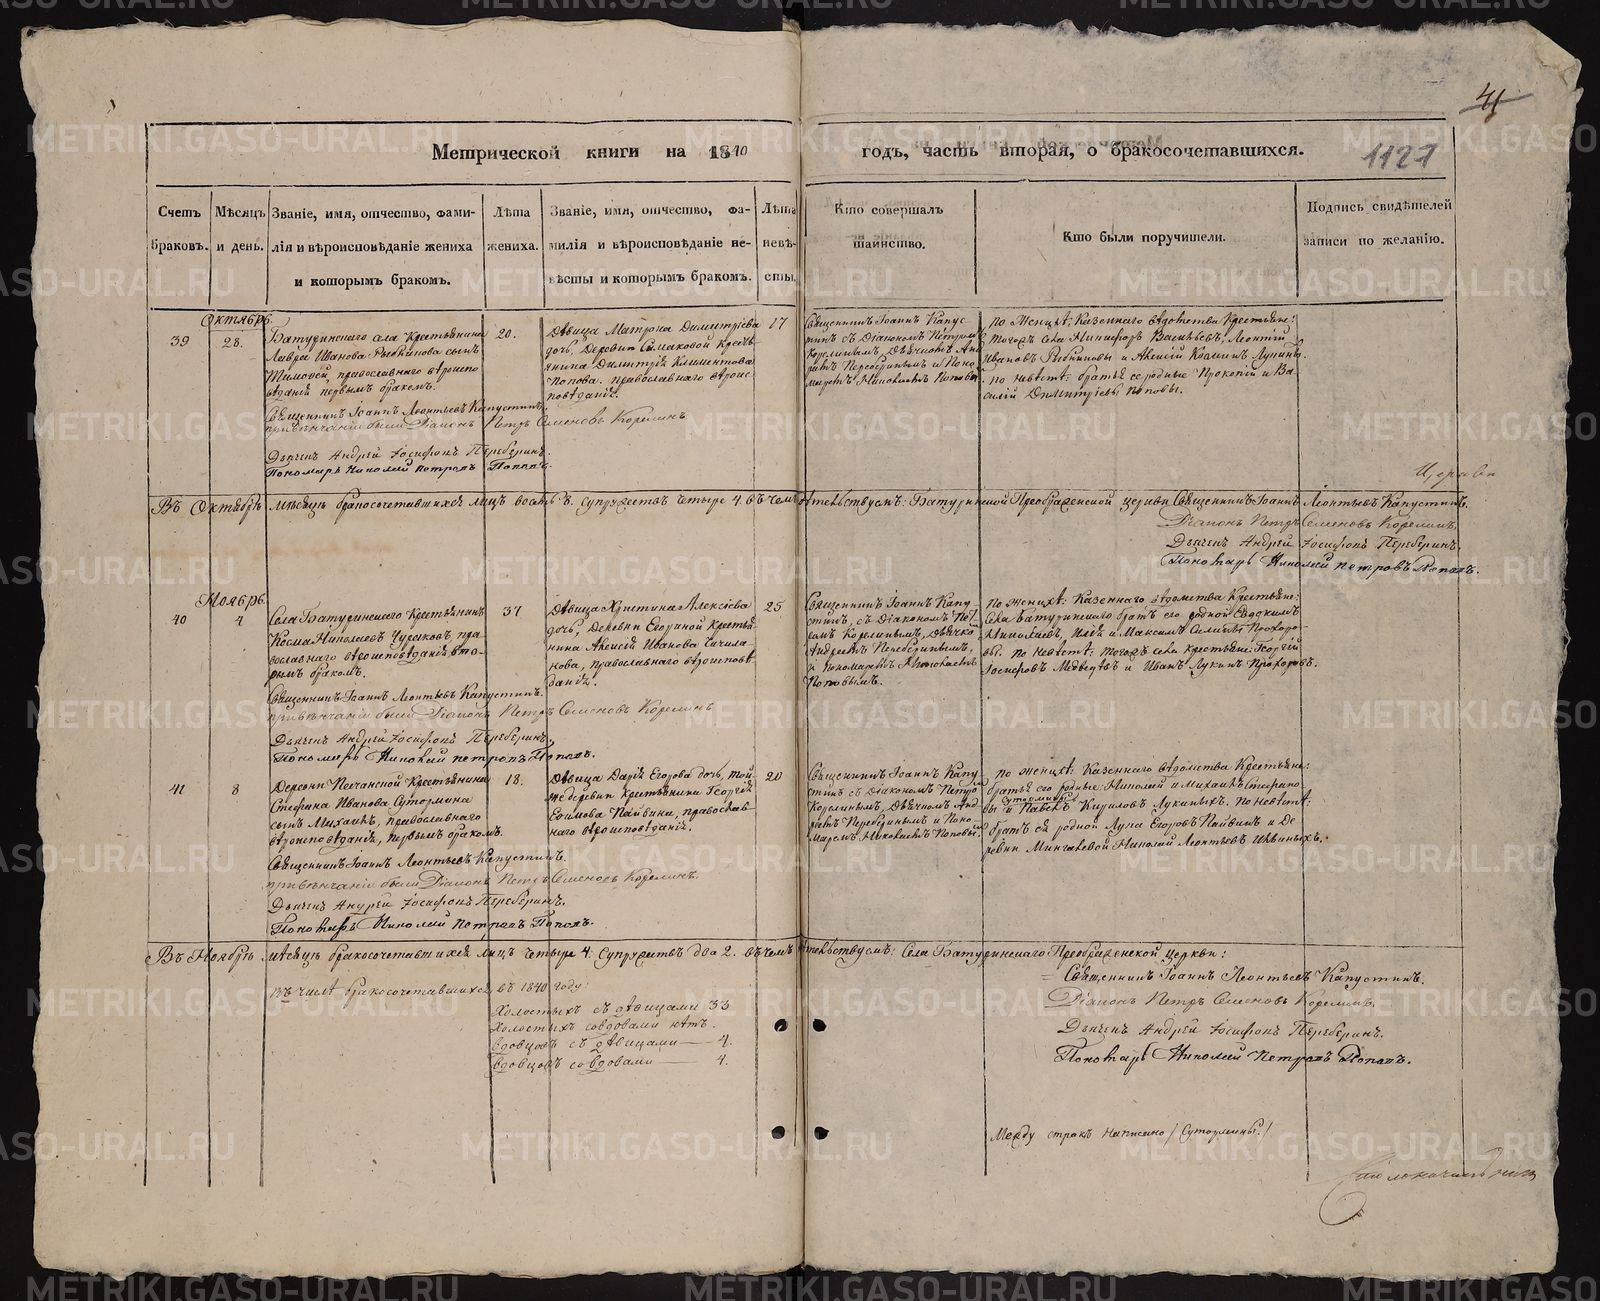 41
Метрической книги на 1840
годъ, часть вторая, о бракосочетавшихся.
1127
Счетъ браковъ.
Мѣсяцъ и день.
Званіе, имя, отчество, фами-
лія и вѣроисповѣданіе жениха
и которымъ бракомъ.
Лѣта
жениха.
Званіе, имя, отчество, фа-
милія и вѣроисповѣданіе не-
вѣсты и которымъ бракомъ.
Лѣта
невѣ-
сты.
Кто совершалъ
таинство.
Кто были поручители.
Подпись свидѣтелей
записи по желанію.
Октябрь.
39
28.
Батуринскаго села Крестьянина
Лавра Иванова Рыбникова сынъ
Тимофей, православнаго вѣроиспо
вѣданія первымъ бракомъ.
20.
Дѣвица Матрона Димитріева
дочь, Деревни Симаковой Кресть
янина Димитрія Климентова
Попова. православнаго вѣроис
повѣданія.
17
Священникъ Іоаннъ Капус
тинъ съ Діакономъ Петромъ
Корелинымъ, Дьячкомъ Анд
реемъ Переберинымъ и Поно
маремъ Николаемъ Поповы
по Женихѣ: Казеннаго вѣдомства Крестьяне:
Тогожъ села Никифоръ Васильевъ, Леонтій
Ивановъ Рыбниковы и Алексій Козминъ Лунинъ.
по невѣстѣ: братья ее родные Прокопій и Ва
силій Димитріевы Поповы.
Священникъ Іоаннъ Леонтьевъ Капустинъ.
при вѣнчаніи были Діаконъ Петръ Семеновъ Корелинъ
Дьячекъ Андрей Іосифовъ Переберинъ.
Пономарь Николай Петровъ Поповъ.
Церкви
Въ Октябрѣ мѣсяцѣ бракосочетавшихся лицъ восемь 8. супружествъ четыре 4. въ чемъ свидѣтельствуемъ: Батуринской Преображенской церкви Священникъ Іоаннъ Леонтьевъ Капустинъ.
Діаконъ Петръ Семеновъ Корелинъ,
Дьячекъ Андрей Іосифовъ Переберинъ.
Пономарь Николай Петровъ Поповъ.
Ноябрь.
40
4
Села Батуринскаго Крестьянинъ
Косма Николаевъ Чусаковъ, пра
вославнаго вѣроисповѣданія вто-
рымъ бракомъ.
37
Дѣвица Христина Алексіева
дочь, Деревни Егориной Крестья
нина Алексія Иванова Чичила
нова, православнаго вѣроиспов
ѣданія.
25
Священникъ Іоаннъ Капу-
стинъ, съ Діакономъ Пет-
ромъ Корелинымъ, Дьячко
Андреемъ Переберинымъ,
и Пономаремъ Николаемъ
Поповымъ.
По женихѣ: Казеннаго вѣдомства Крестьяне:
Села Батуринскаго братъ его родной Евдокимъ
Николаевъ, Илья и Максимъ Силины Прохоро-
вы. по невѣстѣ: тогожъ села Крестьяне: Георгій
Іосифовъ Медведевъ и Иванъ Лукинъ Прохоровъ.
Священникъ Іоаннъ Леонтьевъ Капустинъ.
при вѣнчаніи были Діаконъ Петръ Семеновъ Корелинъ
Дьячекъ Андрей Іосифовъ Переберинъ.
Пономарь Николай Петровъ Поповъ.
41
8
Деревни Песчанской Крестьянина
Стефана Иванова Сутормина
сынъ Михаилъ, православнаго
вѣроисповѣданія, первымъ бракомъ.
18.
Дѣвица Дарія Егорова дочь, той
же деревни Крестьянина Георгія
Екимова Пайвина, православ-
наго вѣроисповѣданія.
20
Священникъ Іоаннъ Капу
стинъ съ Діакономъ Петро
Корелинымъ, Дьячкомъ Анд
реемъ Переберинымъ и Поно-
маремъ Николаемъ Поповы
по женихѣ: Казеннаго вѣдомства Крестьяне:
братья его родные Николай и Михаилъ Стефано
Сутормины
вы и Павелъ Кириловъ Лукиныхъ. по невѣстѣ:
братъ ея родной Лука Егоровъ Пайвинъ и Де
ревни Мингалевой Николай Леонтьевъ Ивиныхъ.
Священникъ Іоаннъ Леонтьевъ Капустинъ.
при вѣнчаніи были Діаконъ Петръ Семеновъ Корелинъ.
Дьячекъ Андрей Іосифовъ Переберинъ.
Пономарь Николай Петровъ Поповъ.
Въ Ноябрѣ мѣсяцѣ бракосочетавшихся лицъ четыре 4. Супружествъ два 2. въ чемъ свидѣтельствуемъ: Села Батуринскаго Преображенской церкви:
Священникъ Іоаннъ Леонтьевъ Капустинъ.
Діаконъ Петръ Семеновъ Корелинъ,
Дьячекъ Андрей Іосифовъ Переберинъ.
Пономарь Николай Петровъ Поповъ.
Въ числѣ бракосочетавшихся въ 1840 году:
Холостыхъ съ дѣвицами 33
Холостыхъ со вдовами нѣтъ.
Вдовцовъ съ дѣвицами — 4.
Вдовцовъ со вдовами — 4.
Между строкъ написано /Сутормины./
METRIKI.GASO-URAL.RU